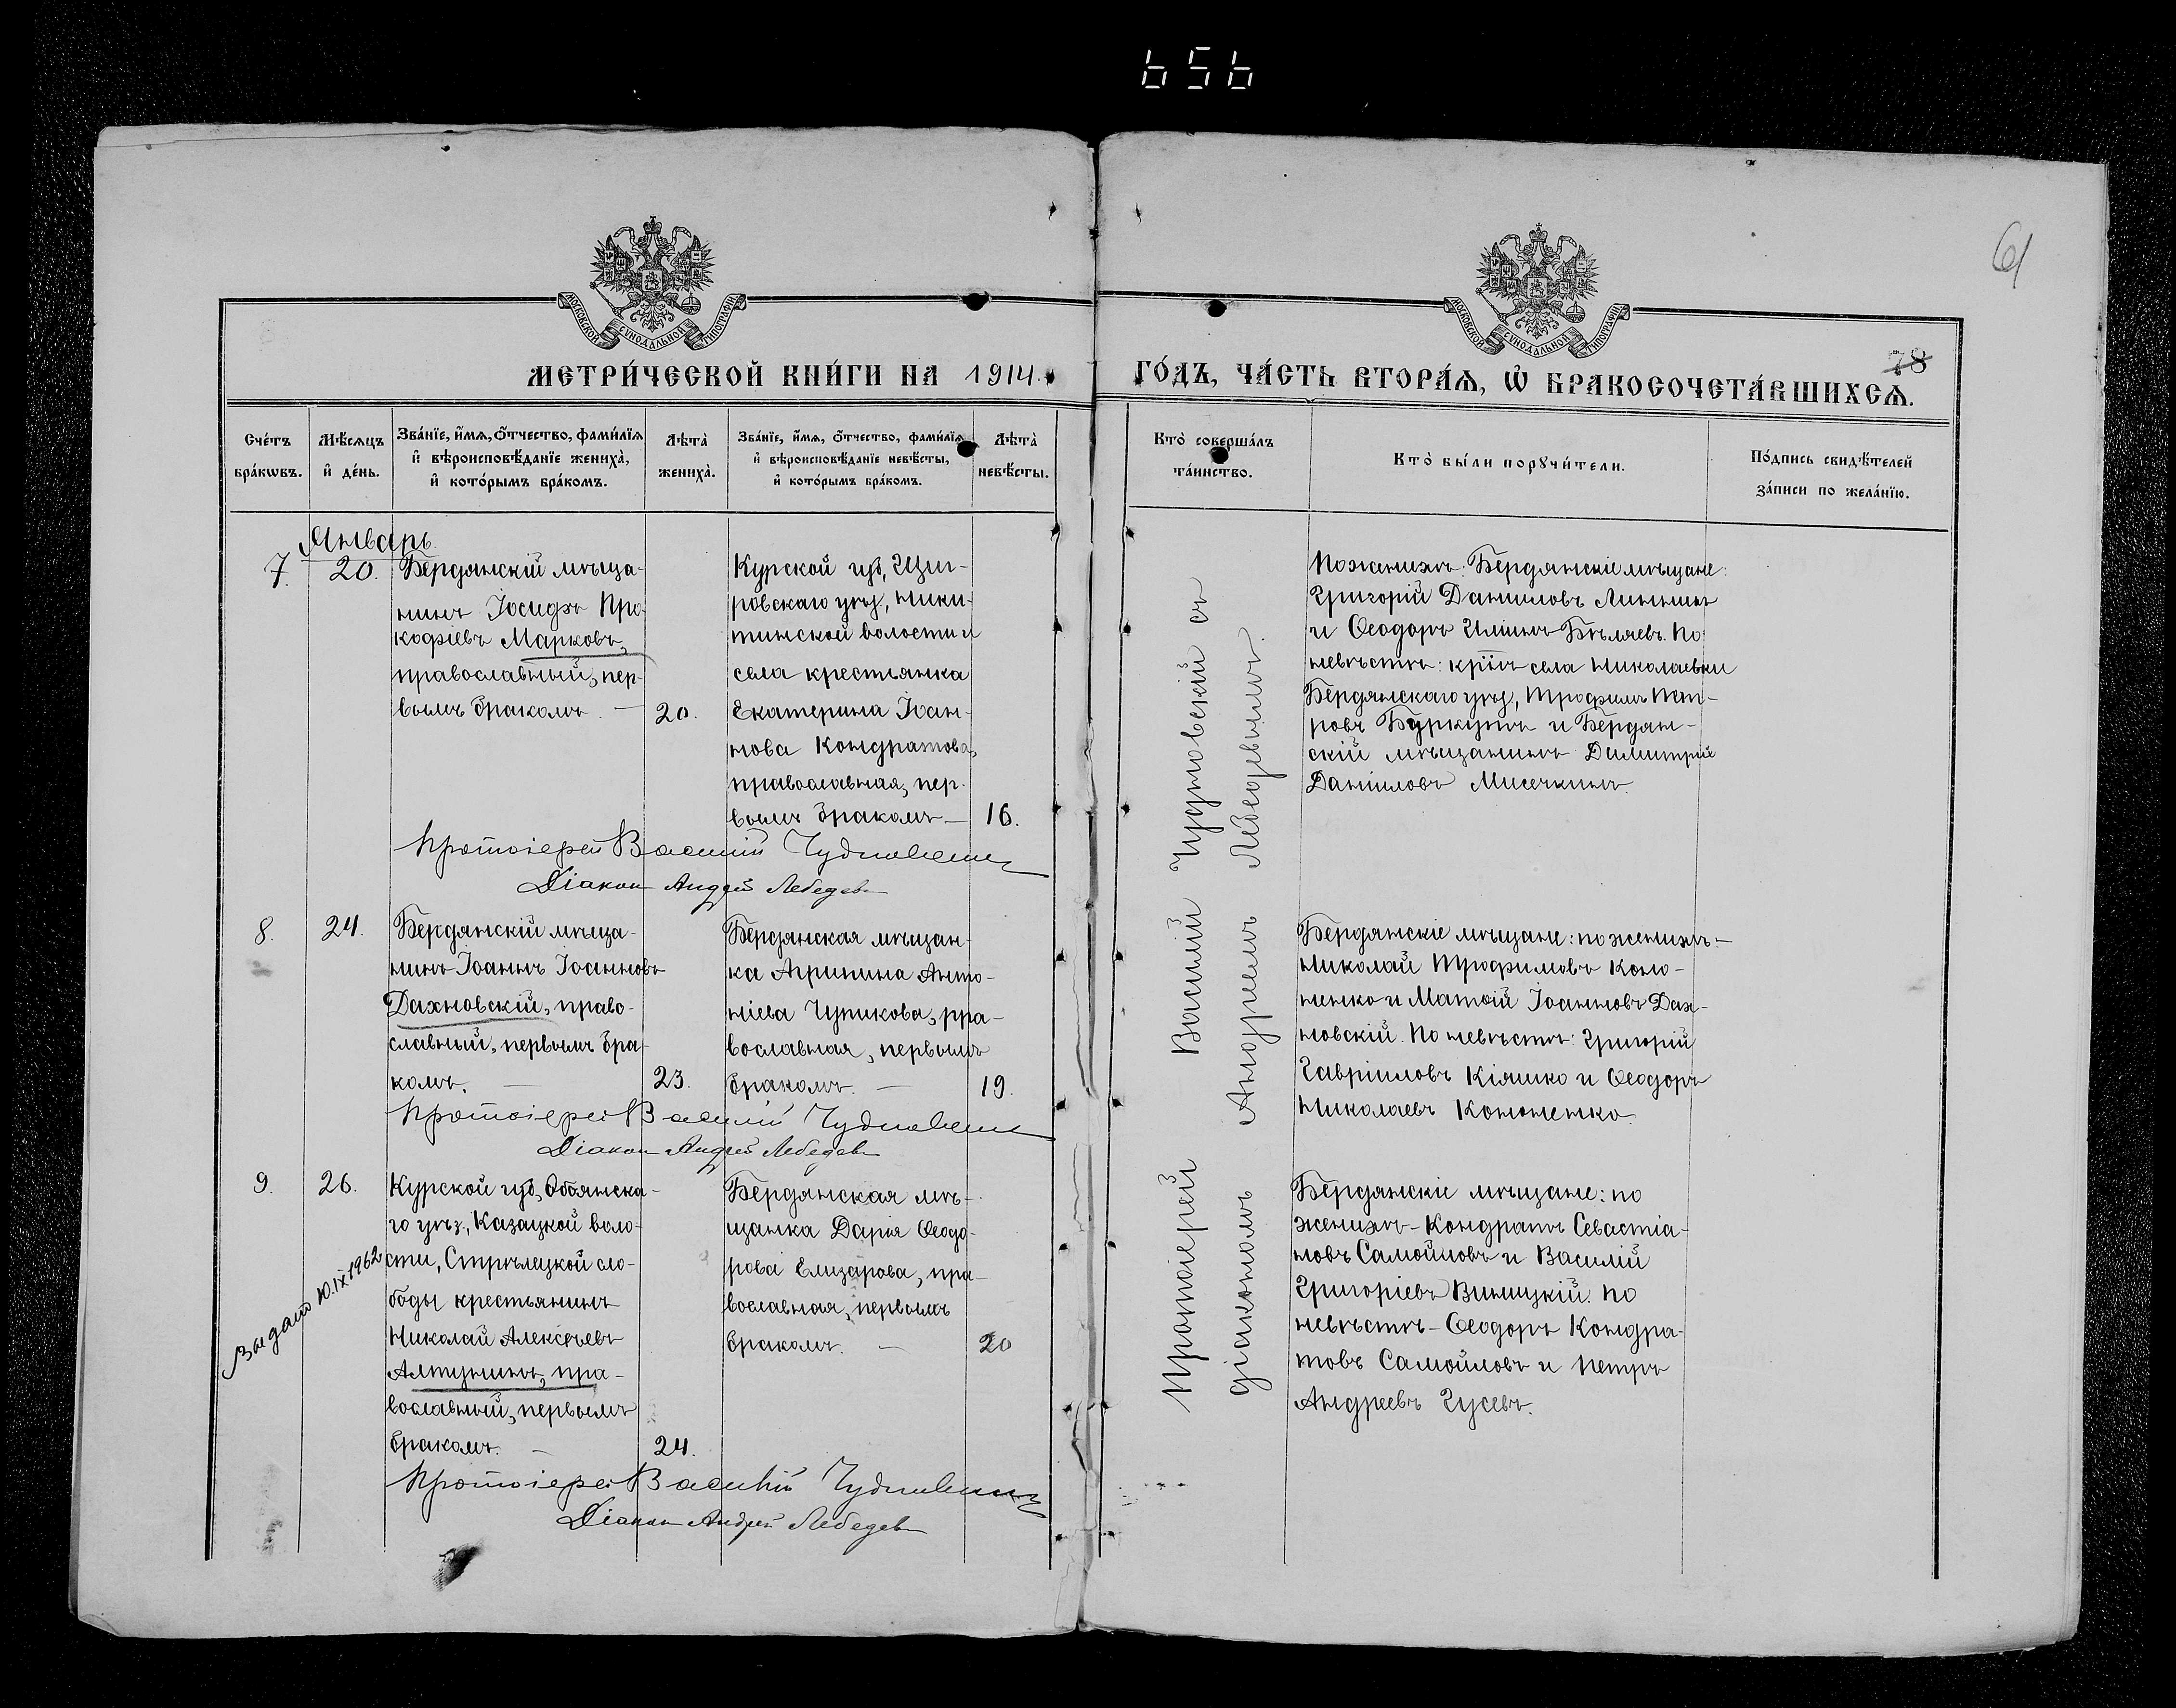 656
61
78
МОСКОВСКОЙ СѴНОДАЛЬНОЙ ТИПОГРАФІИ
МЕТРИ́ЧЕСКОЙ КНИ́ГИ НА 1914.
Сче́тъ бра́кѡвъ.
Мѣ́сѧцъ и҆ де́нь.
Зва́нїе, и҆́мѧ, ѻ҆́тчество, фамилїѧ
и҆ вѣроисповѣ́данїе жениха̀,
и҆ кото́рымъ бра́комъ.
Лѣта̀ жениха̀.
Зва́нїе, и҆́мѧ, ѻ҆́тчество, фамилїѧ
и҆ вѣроисповѣ́данїе невѣ́сты,
и҆ кото́рымъ бра́комъ.
Лѣта̀ невѣ́сты.
Январь
7. 20.
Бердянскій мѣща-
нинъ Іосифъ Про-
кофіевъ Марковъ,
православный, пер-
вымъ бракомъ. —
20.
Курской губ, Щиг-
ровскаго уѣз, Ники-
тинской волости и
села крестьянка
Екатерина Іоан-
нова Кондратова,
православная, пер-
вымъ бракомъ —
16.
Протоіерей Василій Чудновскій
Діаконъ Андрей Лебедевъ
8. 24.
Бердянскій мѣща-
нинъ Іоаннъ Іоанновъ
Дахновскій, право-
славный, первымъ бра-
комъ. —
23.
Бердянская мѣщан-
ка Агрипина Анто-
ніева Чупикова, пра-
вославная, первымъ
бракомъ. —
19.
Протоіерей Василій Чудновскій
Діаконъ Андрей Лебедевъ
9. 26.
Курской губ, Обоянска-
го уѣз., Казацкой воло-
сти, Стрѣлецкой сло-
боды крестьянинъ
Николай Алексѣевъ
Алтунинъ, пра-
вославный, первымъ
бракомъ. —
24.
Бердянская мѣ-
щанка Дарія Ѳеодо-
рова Елизарова, пра-
вославная, первымъ
бракомъ. —
20
Выдано 10.IX 1962
Протоіерей Василій Чудновскій
Діаконъ Андрей Лебедевъ
МОСКОВСКОЙ СѴНОДАЛЬНОЙ ТИПОГРАФІИ
ГО́ДЪ, ЧА́СТЬ ВТОРА́Ѧ, Ѡ҆ БРАКОСОЧЕТА́ВШИХСѦ.
Кто̀ соверша́лъ та́инство.
Кто̀ бы́ли порꙋчи́тели.
По́дпись свидѣ́телей
за́писи по жела́нїю.
Протоіерей Василій Чудновскій съ
діакономъ Андреемъ Лебедевымъ.
По женихѣ: Бердянскіе мѣщане:
Григорій Даниловъ Линникъ
и Ѳеодоръ Иліинъ Бѣляевъ. По
невѣстѣ: крїнъ села Николаевки
Бердянскаго уѣз, Трофимъ Пет-
ровъ Буркутъ и Бердян-
скій мѣщанинъ Димитрій
Даніиловъ Мисечкинъ.
Бердянскіе мѣщане: по женихѣ:—
Николай Трофимовъ Коно-
ненко и Матѳій Іоанновъ Дах-
новскій. По невѣстѣ: Григорій
Гавріиловъ Кіяшко и Ѳеодоръ
Николаевъ Кононенко.
Бердянскіе мѣщане: по
женихѣ — Кондратъ Севастіа-
новъ Самойловъ и Василій
Григоріевъ Виницкій. По
невѣстѣ — Ѳеодоръ Кондра-
товъ Самойловъ и Петръ
Андреевъ Гусевъ.